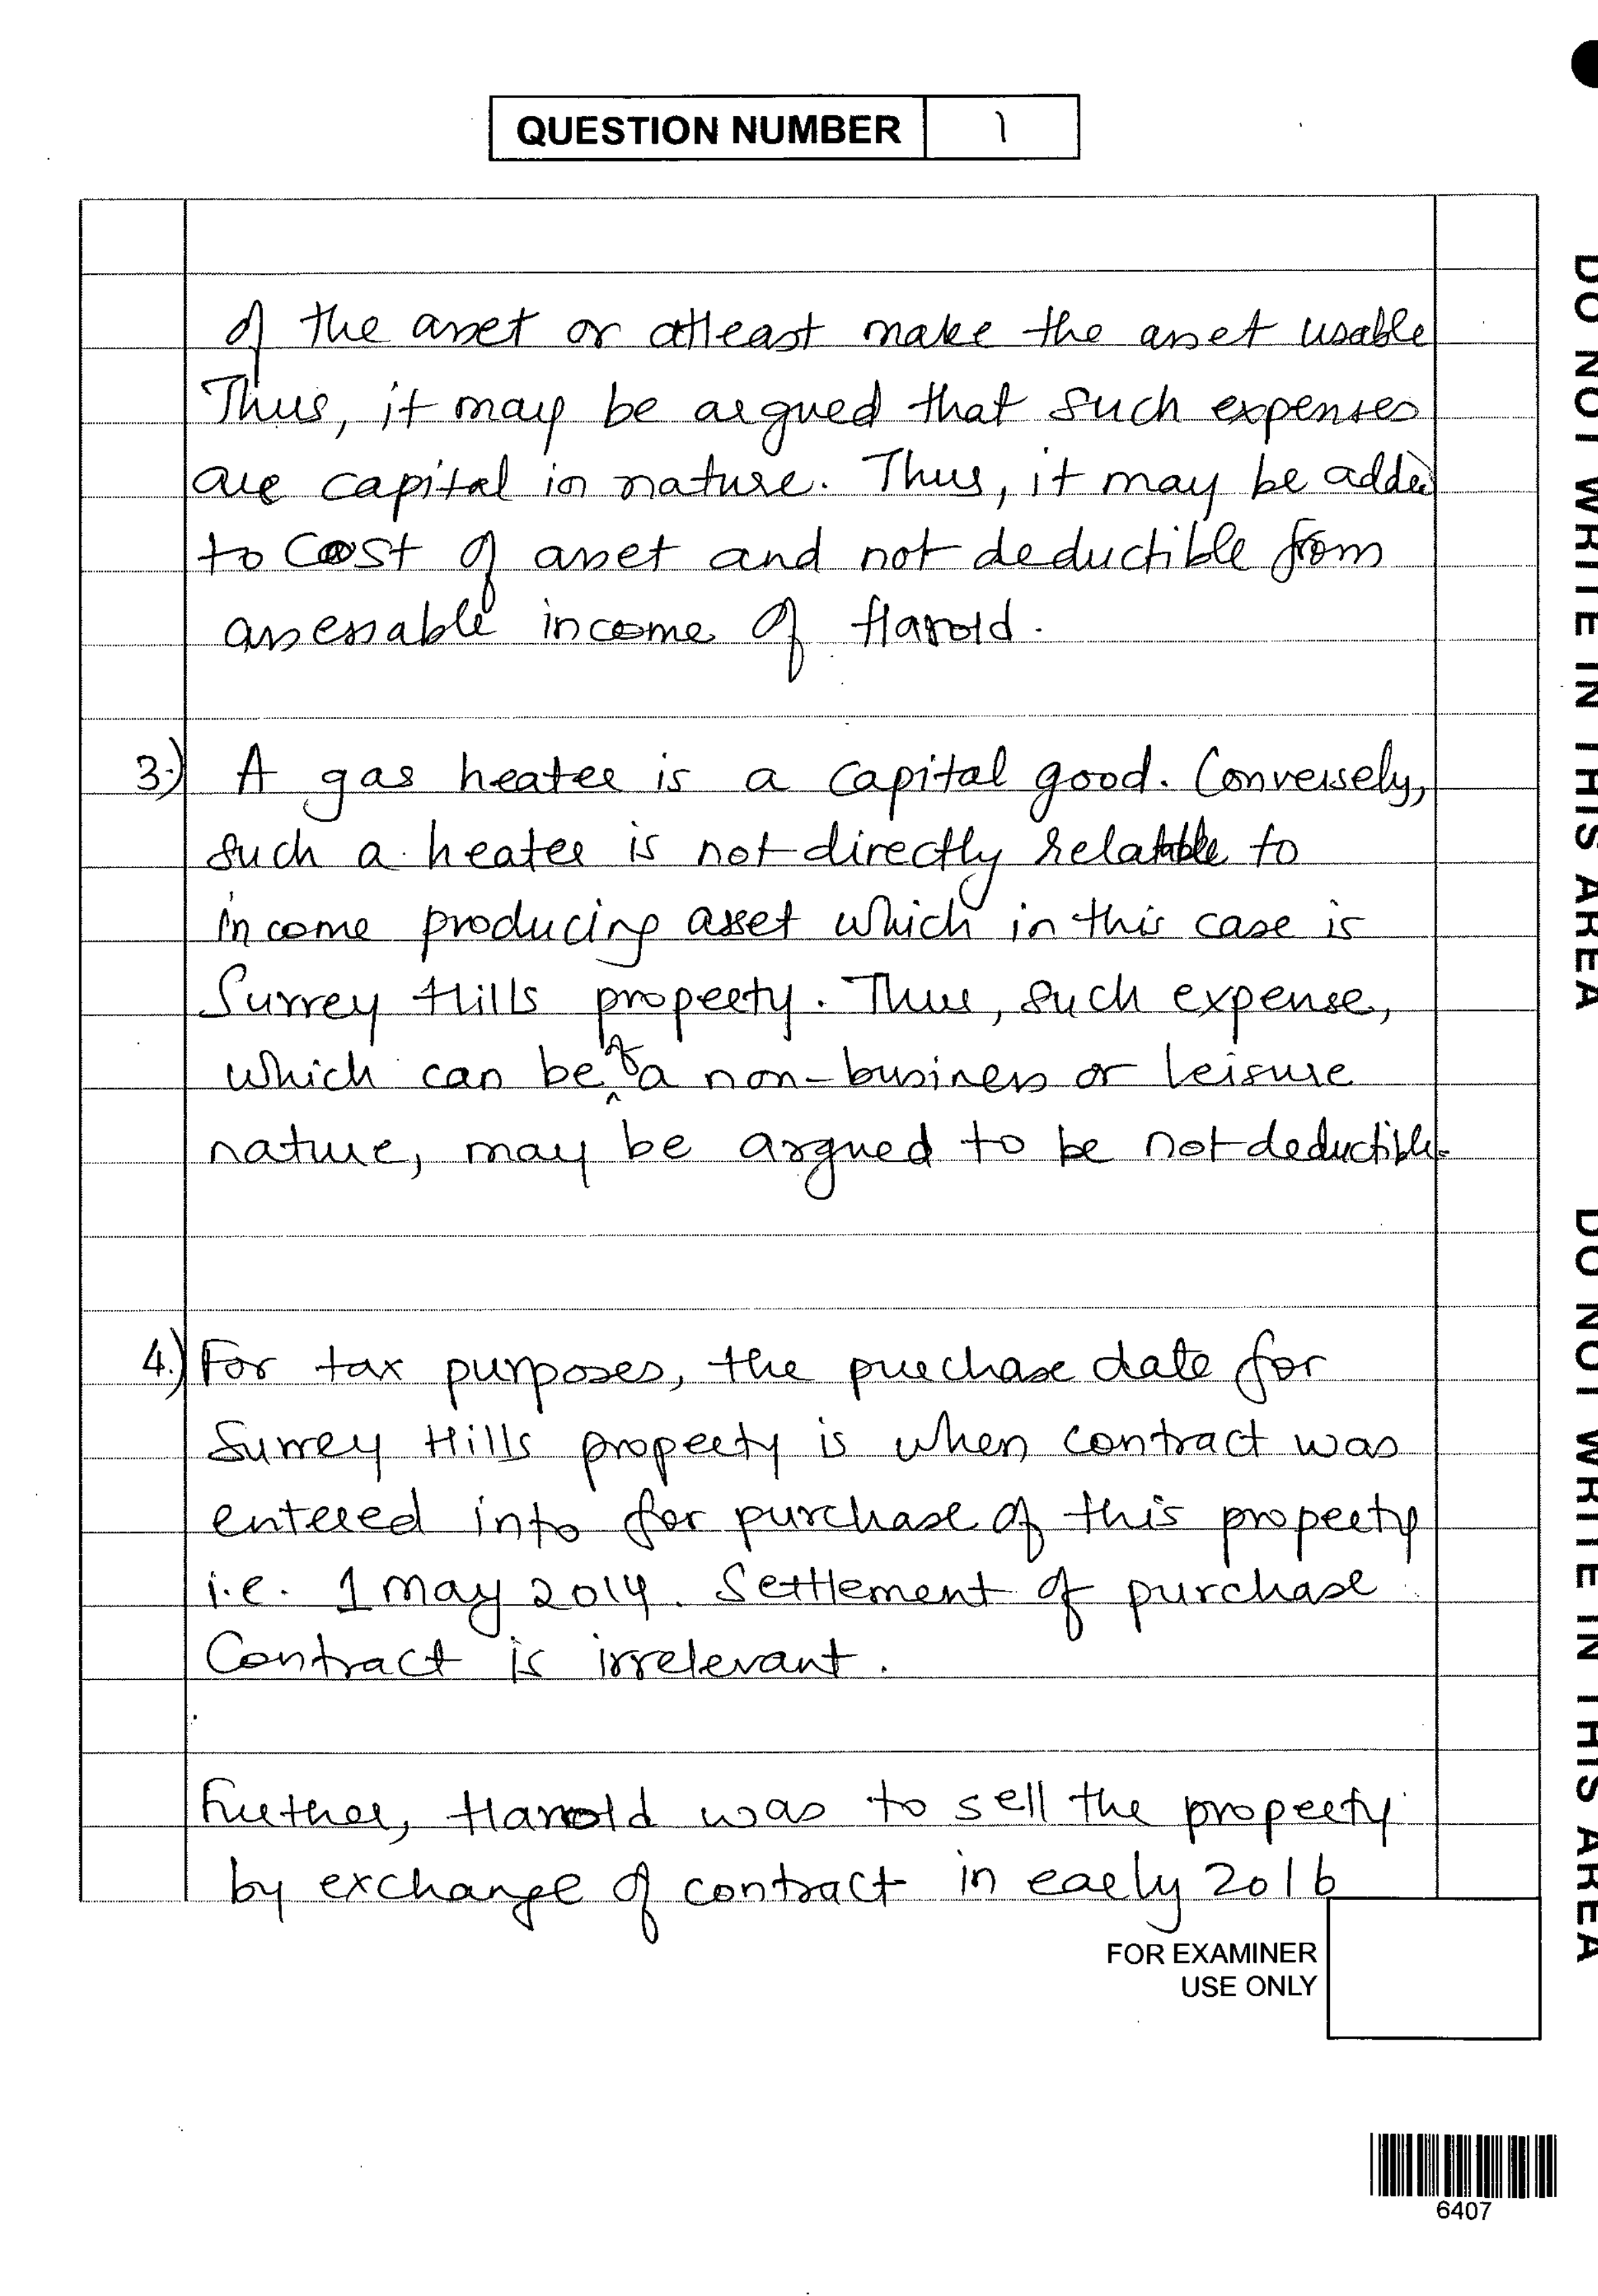 QUESTION NUMBER 1
of the asset or atleast make the asset usable
Thus, it may be argued that such expenses
are capital in nature. Thus, it may be added
to cost of asset and not deductible from
assessable income of Harold.
3.) A gas heater is a capital good. Conversely,
such a heater is not directly relatable to
income producing asset which in this case is
Surrey Hills property. Thus, such expense,
which can be of a non-business or leisure
nature, may be argued to be not deductible.
4.) For tax purposes, the purchase date for
Surrey Hills property is when contract was
entered into for purchase of this property
i.e. 1 May 2014. Settlement of purchase
Contract is irrelevant.
Further, Harold was to sell the property
by exchange of contract in early 2016
FOR EXAMINER
USE ONLY
6407
DO NOT WRITE IN THIS AREA
DO NOT WRITE IN THIS AREA